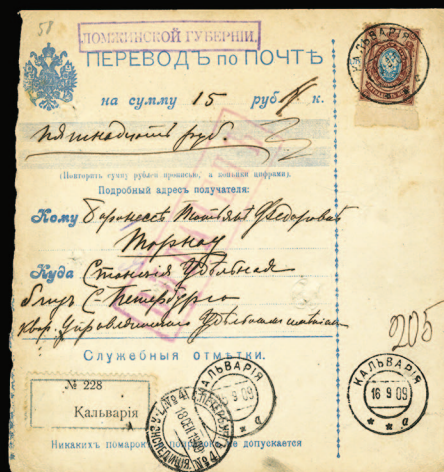 58
ЛОМЖИНСКОЙ ГУБЕРНІИ.
ПЕРЕВОДЪ по ПОЧТѢ
на сумму 15 руб. к.
пятнадцать руб.
(Повторить сумму рублей прописью, а копѣйки цифрами).
Подробный адресъ получателя:
Кому Баронессѣ Татьянѣ Федоровнѣ
Торнау
Куда Станція Удѣльная
близъ С-Петербурга
квар. Удѣльнаго
205
Служебныя отмѣтки.
№ 228
Кальварія
КАЛЬВАРІЯ
КАЛЬВАРІЯ
КАЛЬВАРІЯ
16 9 09
С.ПЕТЕРБУРГЪ
18 СЕН
ЭКСПЕДИЦІЯ
Никакихъ помарокъ не допускается